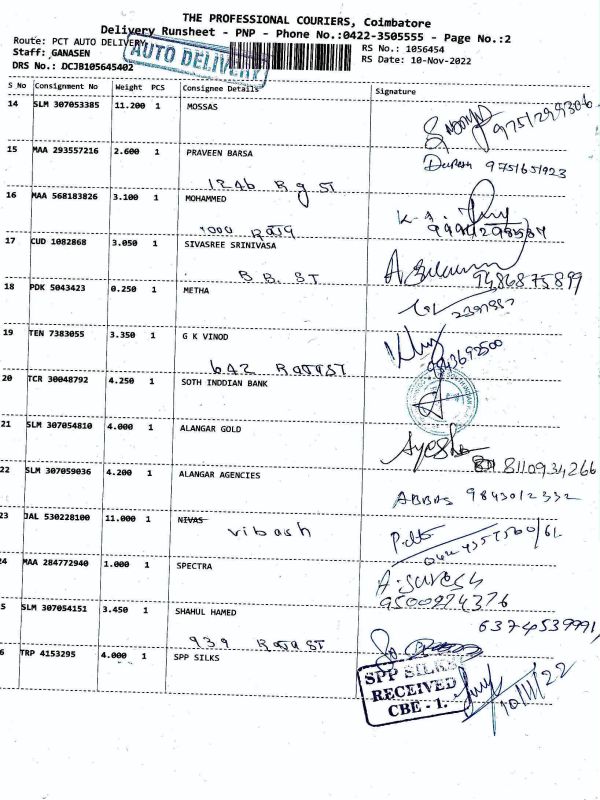 THE PROFESSIONAL COURIERS, Coimbatore
Delivery Runsheet - PNP - Phone No.:0422-3505555 - Page No.:2
Route: PCT AUTO DELIVERY
RS No.: 1056454
AUTO DELIVERY
Staff: GANASEN
RS Date: 10-Nov-2022
DRS No.: DCJB105645402
S No Consignment No Weight PCS Consignee Details Signature
14 SLM 307053385 11.200 1 MOSSAS
15 MAA 293557216 2.600 1 PRAVEEN BARSA
Durash 9751651923
1246 R g ST
16 MAA 568183826 3.100 1 MOHAMMED
1000
17 CUD 1082868 3.050 1 SIVASREE SRINIVASA
B B. ST
9486875899
18 PDK 5043423 0.250 1 METHA
19 TEN 7383055 3.350 1 G K VINOD
9843692500
642 Raja ST
20 TCR 30048792 4.250 1 SOTH INDDIAN BANK
21 SLM 307054810 4.000 1 ALANGAR GOLD
Ayesha
8110934266
22 SLM 307059036 4.200 1 ALANGAR AGENCIES
ABBAS 9843012332
23 JAL 530228100 11.000 1 NIVAS
vibash
24 MAA 284772940 1.000 1 SPECTRA
A. Suresh
9500974376
5 SLM 307054151 3.450 1 SHAHUL HAMED
6374539991
939 Raja ST
6 TRP 4153295 4.000 1 SPP SILKS
SPP SILKS
RECEIVED
CBE - 1.
10/11/22